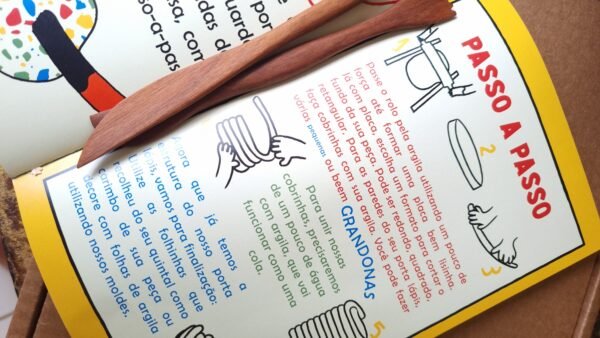 por
das d
uarde
sa, com
so-a-pas
PASSO A PASSO
1
Passe o rolo pela argila utilizando um pouco de
força até formar uma placa bem lisinha.
Já com placa, escolha um formato para cortar o
fundo da sua peça. Pode ser redondo, quadrado,
retangular. Para as paredes do seu porta lápis,
faça cobrinhas com sua argila. Você pode fazer
várias pequenas ou beem GRANDONAS
2
3
Para unir nossas
cobrinhas, precisaremos
de um pouco de água
com argila, que vai
funcionar como uma
cola.
5
Agora que já temos a
estrutura do nosso porta
lápis, vamos para finalização:
Utilize as folhinhas que
recolheu do seu quintal como
carimbo de sua peça ou
decore com folhas de argila
utilizando nossos moldes.